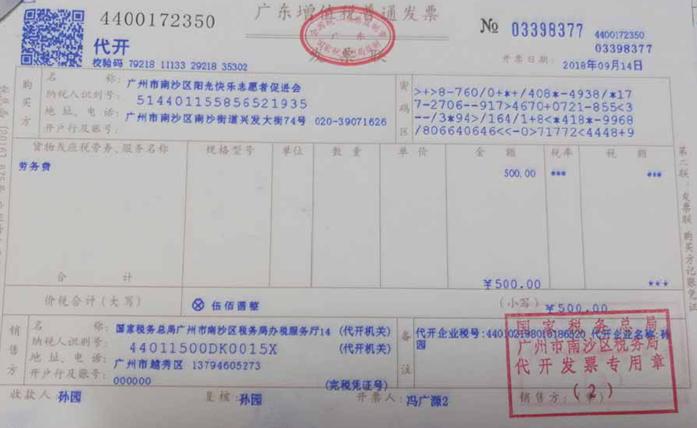 4400172350
广东增值税普通发票
№ 03398377
4400172350
03398377
代开
校验码 79218 11133 29218 35302
开票日期: 2018年09月14日
购买方
名 称: 广州市南沙区阳光快乐志愿者促进会
纳税人识别号: 514401155856521935
地 址、电 话: 广州市南沙区南沙街道兴发大街74号 020-39071626
开户行及账号:
密码区
>+>8-760/0+*+/408*-4938/*177
7-2706--917>4670+0721-855<3
--/3*94>/164/1+8<*418*-9968
/806640646<<-0>71772<4448+9
货物或应税劳务、服务名称 规格型号 单位 数量 单价 金额 税率 税额
劳务费 500.00 *** ***
合 计 ¥500.00 ***
价税合计(大写) ⊗ 伍佰圆整 (小写) ¥500.00
销售方
名 称: 国家税务总局广州市南沙区税务局办税服务厅14 (代开机关)
纳税人识别号: 44011500DK0015X (代开机关)
地 址、电 话: 广州市越秀区 13794605273
开户行及账号: 000000 (完税凭证号)
备注
代开企业税号: 代开企业名称:孙
园
国家税务总局
广州市南沙区税务局
代开发票专用章
(2)
收款人: 孙园 复核: 孙园 开票人: 冯广源2 销售方:(章)
第二联:发票联 购买方记账凭证